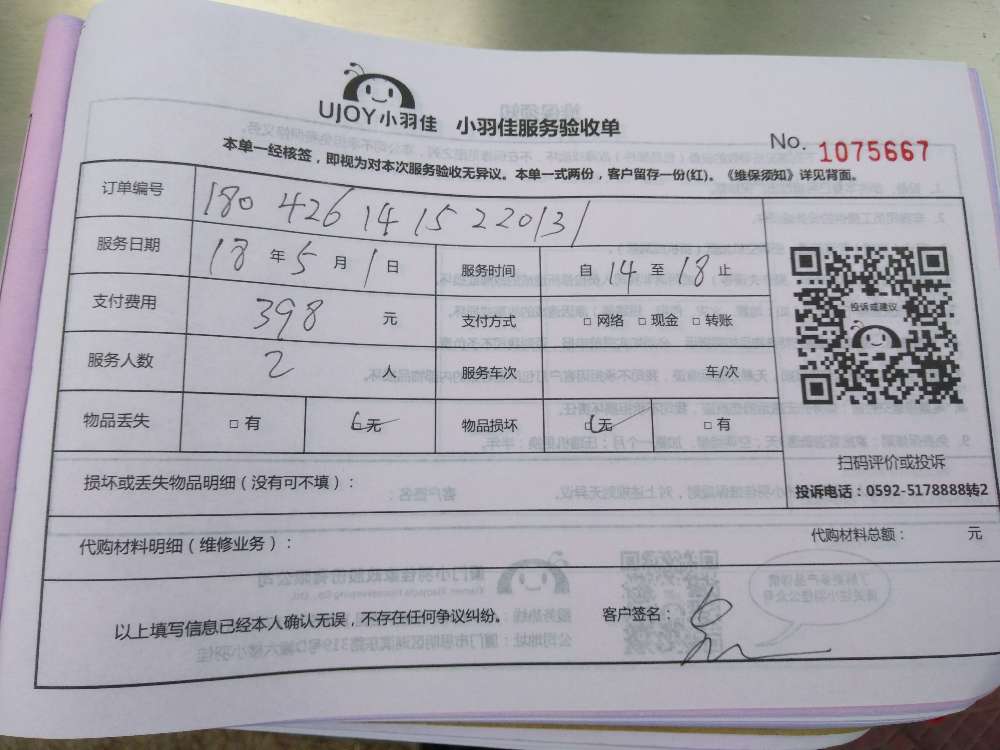 UJOY小羽佳 小羽佳服务验收单
No. 1075667
本单一经核签，即视为对本次服务验收无异议。本单一式两份，客户留存一份(红)。《维保须知》详见背面。
订单编号 180 426 14 15 220131
服务日期 18 年 5 月 1 日 服务时间 自 14 至 18 止
支付费用 398 元 支付方式 □ 网络 □ 现金 □ 转账
服务人数 2 人 服务车次 车/次
物品丢失 □ 有 □ 无 物品损坏 □ 无 □ 有
投诉或建议
扫码评价或投诉
投诉电话：0592-5178888转2
损坏或丢失物品明细（没有可不填）：
代购材料明细（维修业务）： 代购材料总额： 元
以上填写信息已经本人确认无误，不存在任何争议纠纷。 客户签名：